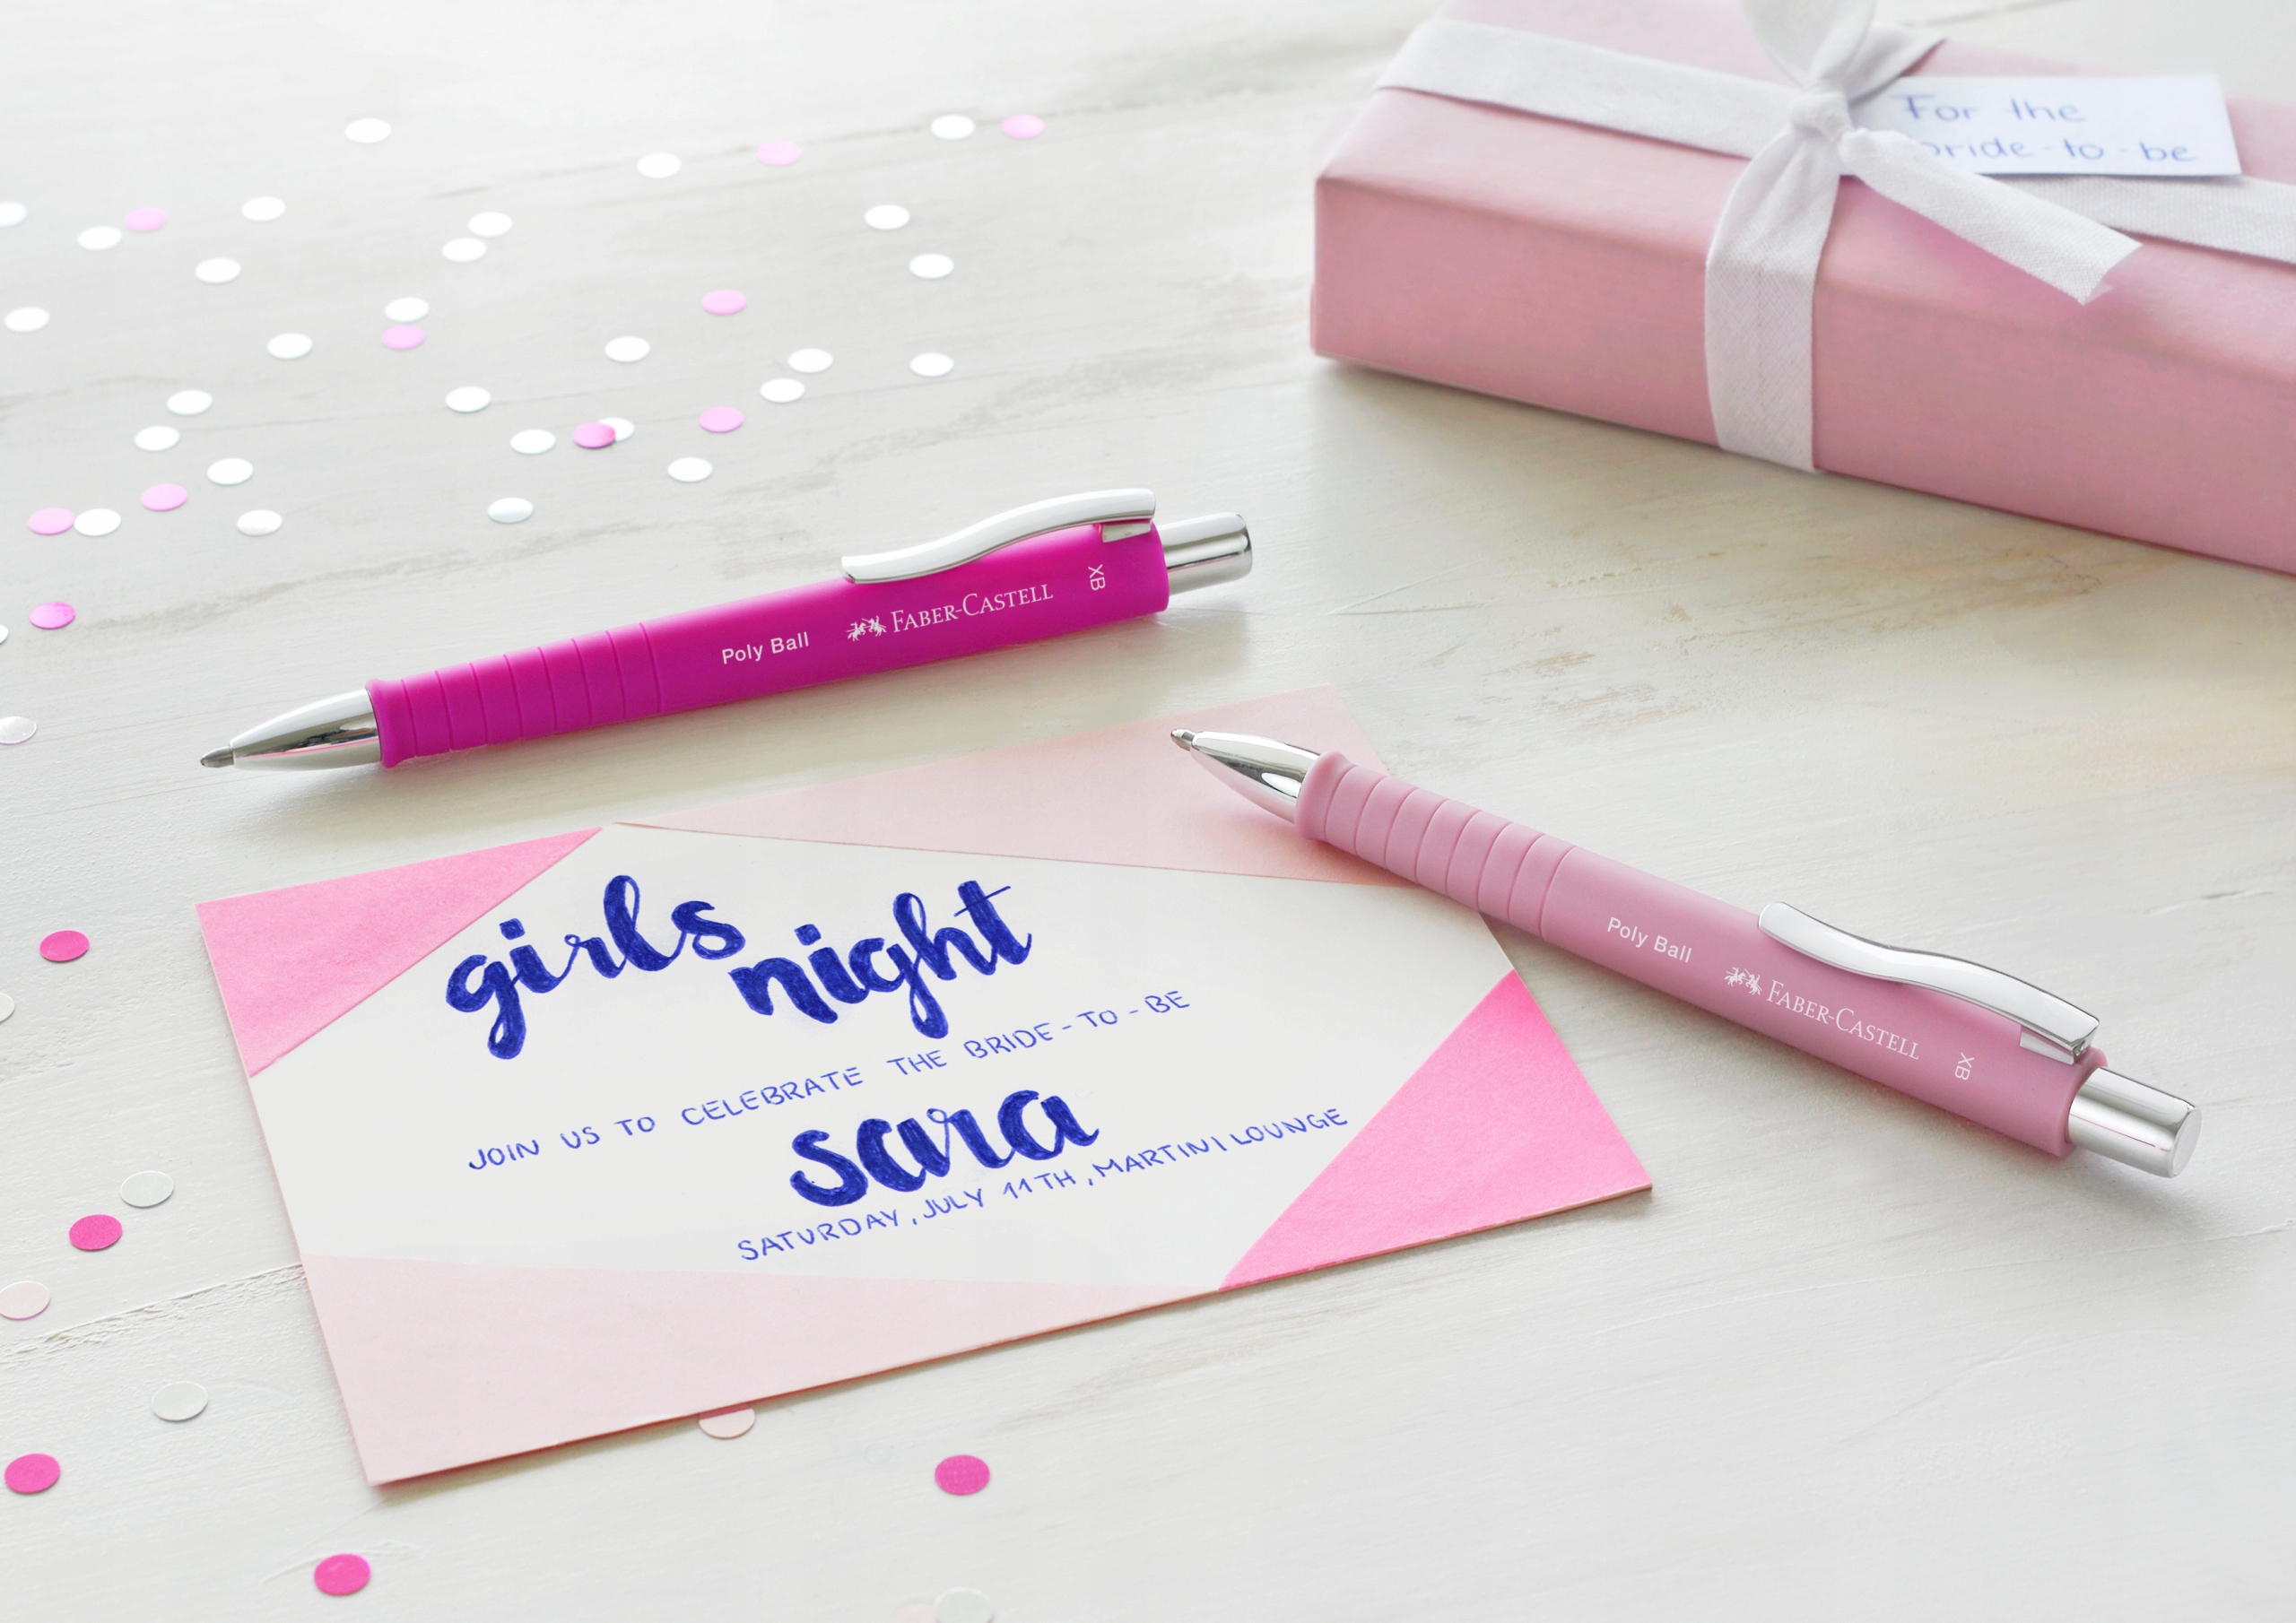 For the
bride-to-be
Poly Ball FABER-CASTELL XB
Poly Ball FABER-CASTELL XB
girls night
JOIN US TO CELEBRATE THE BRIDE-TO-BE
sara
SATURDAY, JULY 11TH, MARTINI LOUNGE